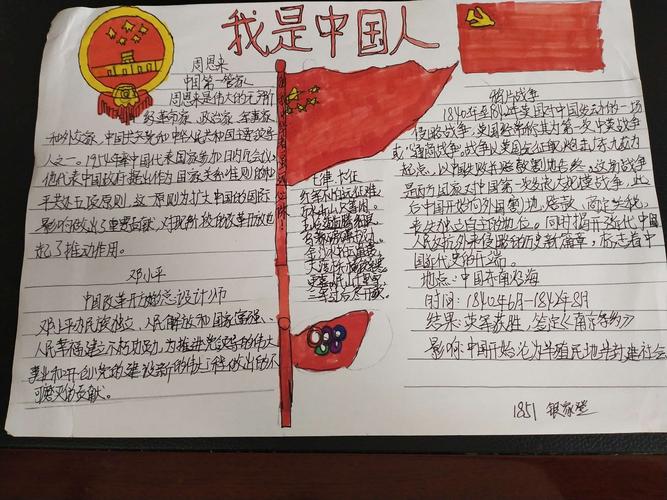 我是中国人
周恩来
中国第一管家
周恩来是伟大的无产阶
级革命家、政治家、军事家
和外交家、中国共产党和中华人民共和国主要领导
人之一。1954年中国代表国家参加日内瓦会议,
他代表中国政府提出作为国家关和准则的和
平共处五项原则,这一原则为扩大中国的国际
影响做出了重要贡献,对现阶段的改革开放也
起了推动作用。
邓小平
中国改革开放总设计师
邓小平为民族独立、人民解放和国家富强、
人民幸福建立不朽功勋,为推进党领导的伟大
事业和开创党的建设新的伟大工程做出的不
可磨灭的贡献。
七律 长征
红军不怕远征难,
万水千山只等闲。
五岭逶迤腾细浪
乌蒙磅礴走泥丸。
金沙水拍云崖暖
大渡桥横铁索寒
更喜岷山千里雪
三军过后尽开颜
鸦片战争
1840年至1842年英国对中国发动的一场
侵略战争。英国经常称其为第一次中英战争
或"通商战争"。战争以英国远征
起点,以中国失败并赔款割地告终。这场战争
是西方国家对中国第一次大规模战争,此
后中国开始向外国割地、赔款、商定关税,
丧失独立自主的地位。同时揭开近代中国
人民反抗外来侵略的历史新篇章,标志着中
国近代史的开端。
地点:中国东南沿海
时间:1840年6月-1842年8月
结果:英军获胜,签定《南京条约》
影响:中国开始沦为半殖民地半封建社会
1851